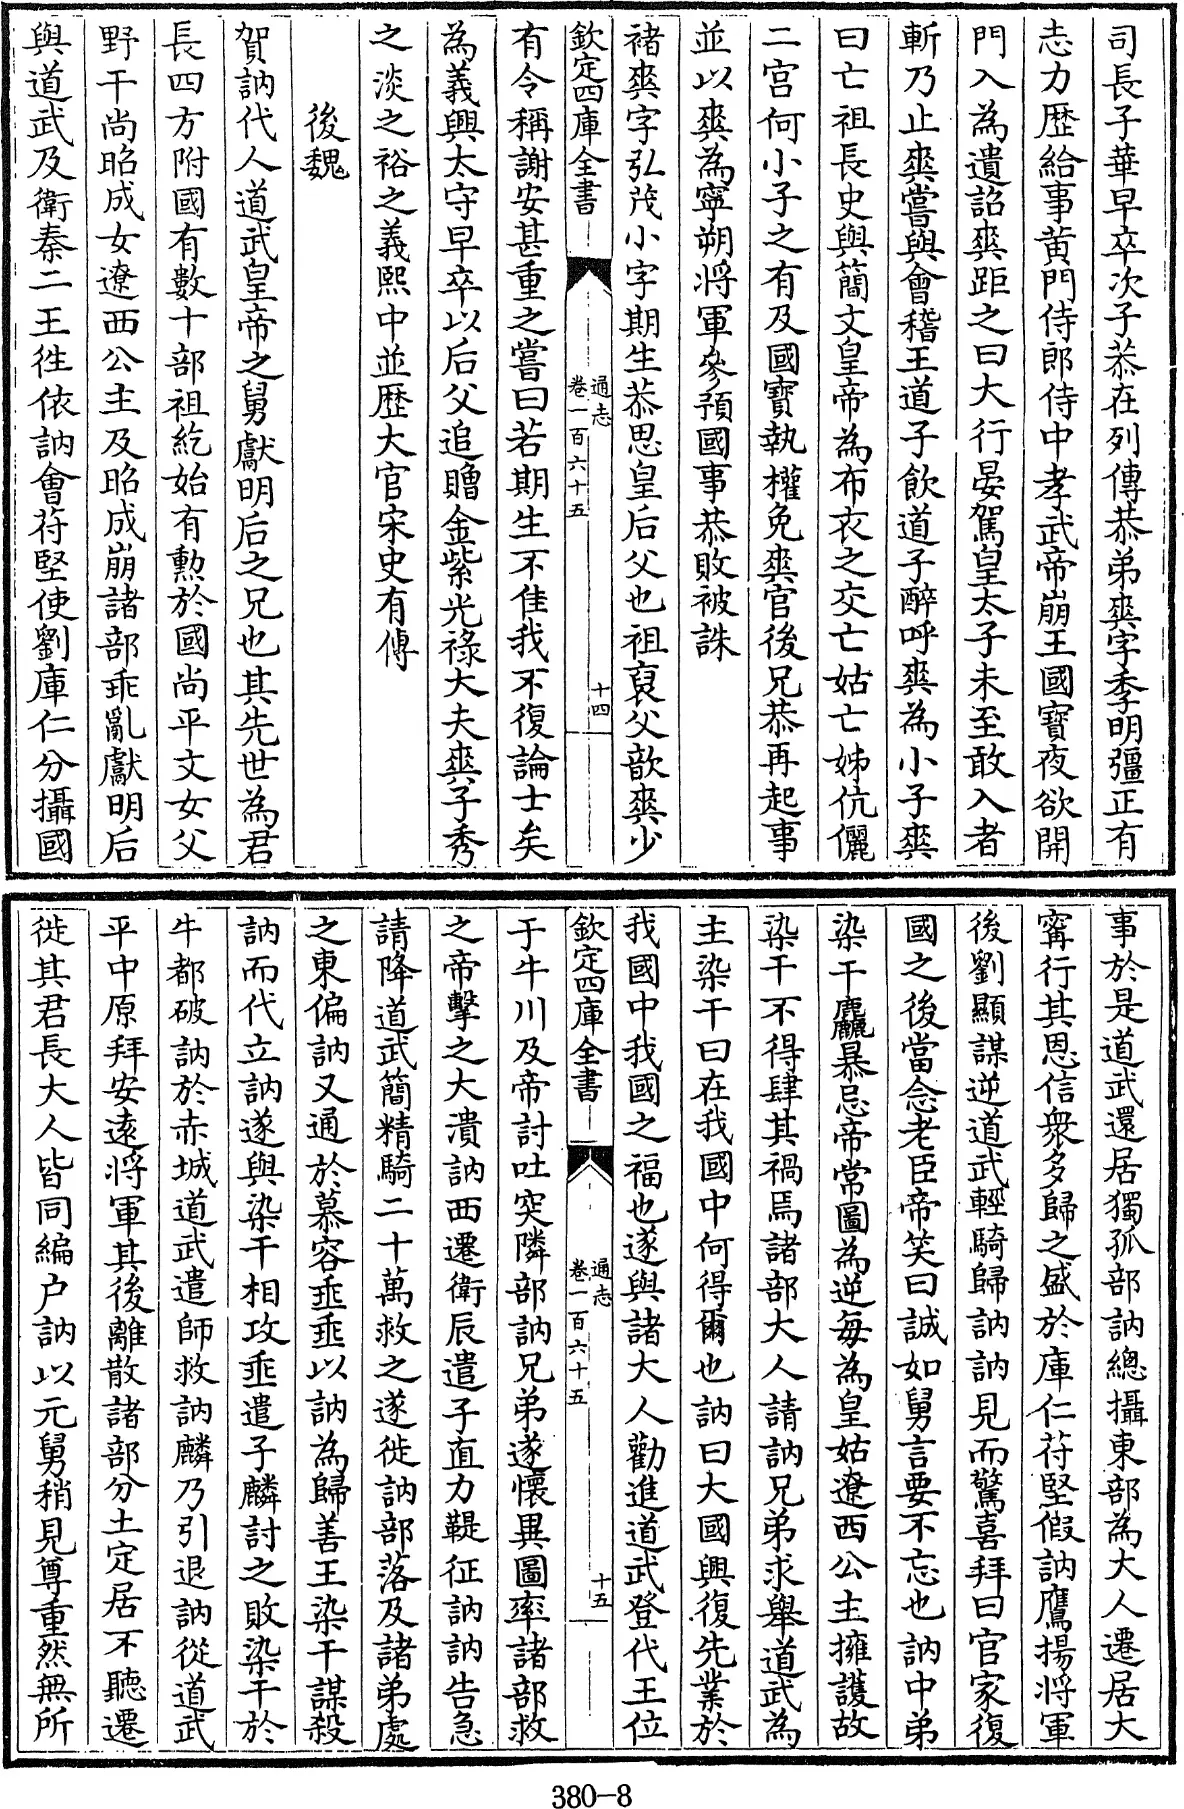 司長子華早卒次子恭在列傳恭弟爽字季明彊正有
志力歴給事黄門侍郎侍中孝武帝崩王國寶夜欲開
門入為遺詔爽距之曰大行晏駕皇太子未至敢入者
斬乃止爽嘗與會稽王道子飲道子醉呼爽為小子爽
曰亡祖長史與簡文皇帝為布衣之交亡姑亡姊伉儷
二宫何小子之有及國寶執權免爽官後兄恭再起事
並以爽為寧朔將軍參預國事恭敗被誅
褚爽字弘茂小字期生恭思皇后父也祖裒父歆爽少
欽定四庫全書
通志
卷一百六十五
十四
有令稱謝安甚重之嘗曰若期生不佳我不復論士矣
為義興太守早卒以后父追贈金紫光祿大夫爽子秀
之淡之裕之義熙中並歴大官宋史有傳
後魏
賀訥代人道武皇帝之舅獻明后之兄也其先世為君
長四方附國有數十部祖紇始有勲於國尚平文女父
野干尚昭成女遼西公主及昭成崩諸部乖亂獻明后
與道武及衛秦二王徃依訥會苻堅使劉庫仁分攝國
事於是道武還居獨孤部訥總攝東部為大人遷居大
寗行其恩信衆多歸之盛於庫仁苻堅假訥鷹揚將軍
後劉顯謀逆道武輕騎歸訥訥見而驚喜拜曰官家復
國之後當念老臣帝笑曰誠如舅言要不忘也訥中弟
染干麤暴忌帝常圖為逆每為皇姑遼西公主擁護故
染干不得肆其禍焉諸部大人請訥兄弟求舉道武為
主染干曰在我國中何得爾也訥曰大國興復先業於
我國中我國之福也遂與諸大人勸進道武登代王位
欽定四庫全書
通志
卷一百六十五
十五
于牛川及帝討吐突隣部訥兄弟遂懷異圖率諸部救
之帝擊之大潰訥西遷衛辰遣子直力鞮征訥訥告急
請降道武簡精騎二十萬救之遂徙訥部落及諸弟處
之東偏訥又通於慕容垂垂以訥為歸善王染干謀殺
訥而代立訥遂與染干相攻垂遣子麟討之敗染干於
牛都破訥於赤城道武遣師救訥麟乃引退訥從道武
平中原拜安逺將軍其後離散諸部分土定居不聽遷
徙其君長大人皆同編户訥以元舅稍見尊重然無所
380-8